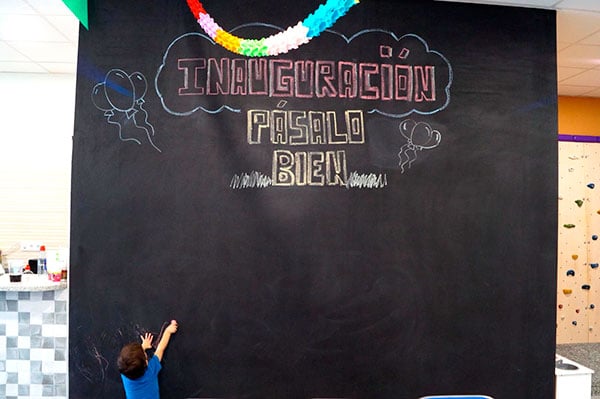 INAUGURACIÓN
PÁSALO
BIEN